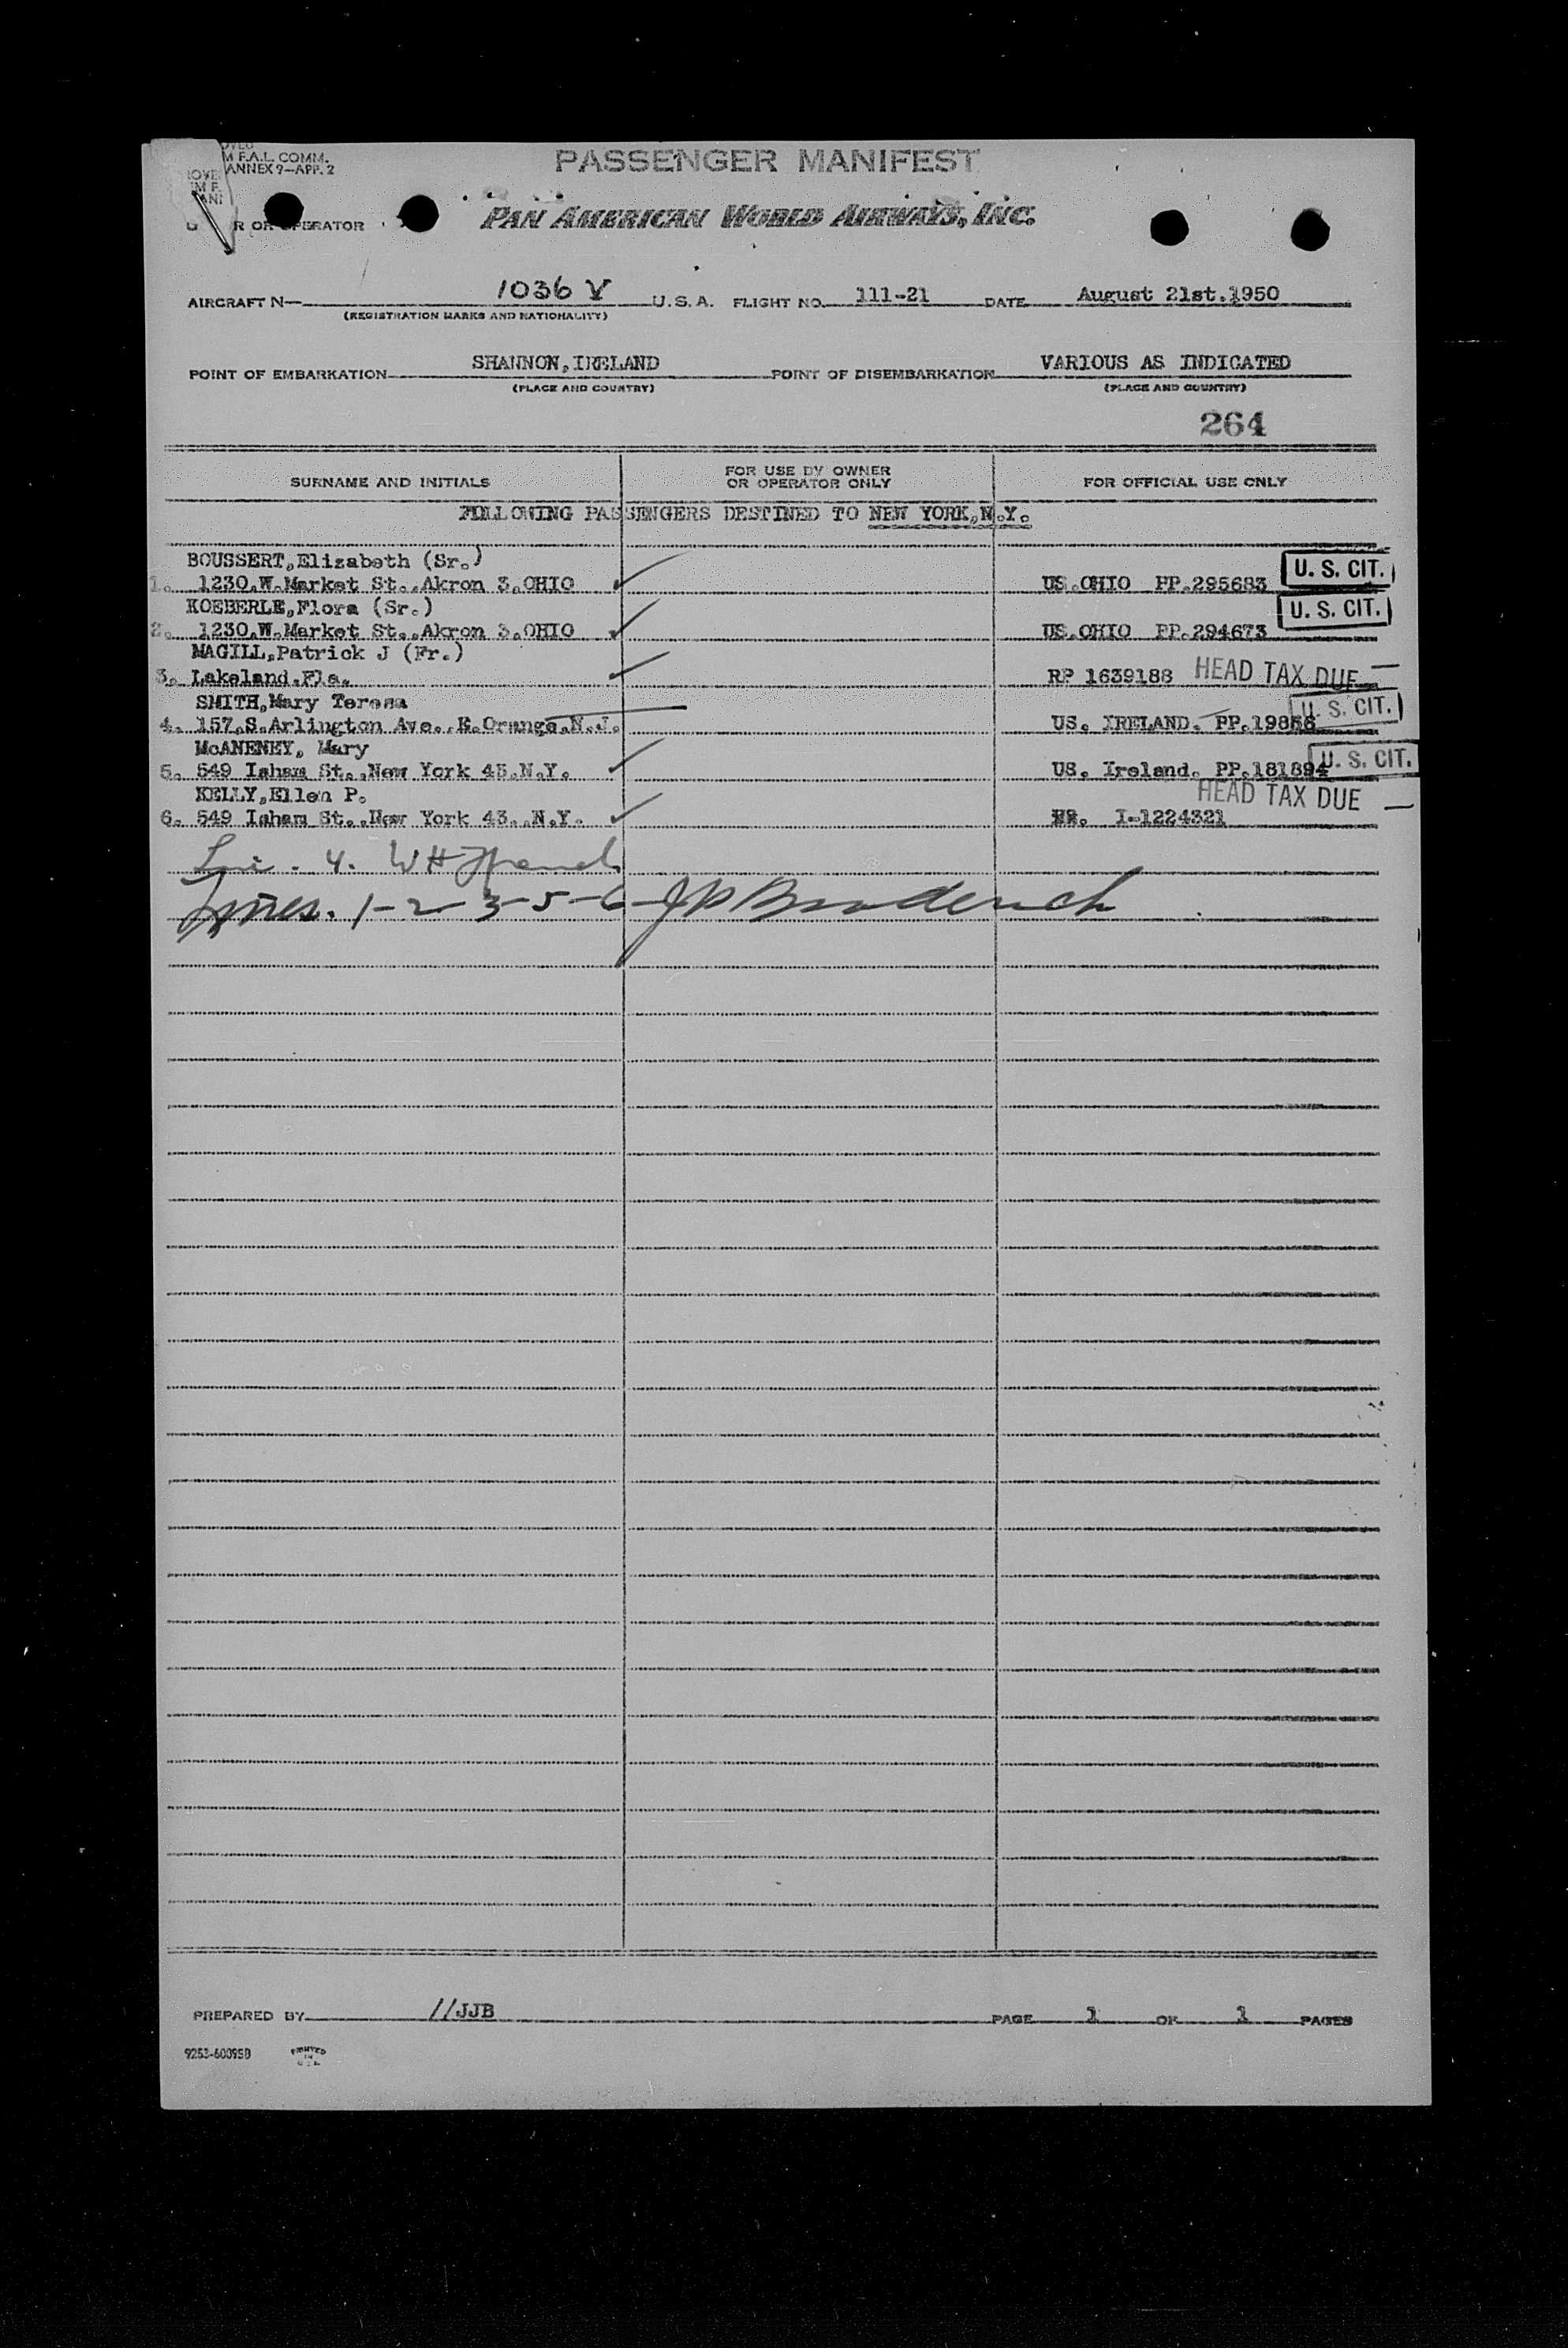 PASSENGER MANIFEST
M F.A.L. COMM.
ANNEX 9—APP. 2
R OR OPERATOR
PAN AMERICAN WORLD AIRWAYS, INC.
AIRCRAFT N— 1036 V U.S.A. FLIGHT NO. 111-21 DATE August 21st.1950
(REGISTRATION MARKS AND NATIONALITY)
POINT OF EMBARKATION SHANNON,IRELAND POINT OF DISEMBARKATION VARIOUS AS INDICATED
(PLACE AND COUNTRY) (PLACE AND COUNTRY)
264
SURNAME AND INITIALS FOR USE BY OWNER OR OPERATOR ONLY FOR OFFICIAL USE ONLY
FOLLOWING PASSENGERS DESTINED TO NEW YORK,N.Y.
BOUSSERT,Elizabeth (Sr.) U. S. CIT.
1. 1230.W.Market St..Akron 3.OHIO US.OHIO PP.295683
KOEBERLE,Flora (Sr.) U. S. CIT.
2. 1230.W.Market St..Akron 3.OHIO US.OHIO PP.294673
MAGILL,Patrick J (Fr.)
3. Lakeland.Fla. RP 1639188 HEAD TAX DUE —
SMITH,Mary Teresa U. S. CIT.
4. 157.S.Arlington Ave..E.Orange.N.J. US. IRELAND. PP.19856
McANENEY, Mary U. S. CIT.
5. 549 Isham St..New York 45.N.Y. US. Ireland. PP.181894
KELLY,Ellen P. HEAD TAX DUE —
6. 549 Isham St..New York 43..N.Y. I-1224321
4. WH
Lines. 1-2-3-5-6- JP Broderick
PREPARED BY //JJB PAGE 1 OF 1 PAGES
9253-60095B PRINTED IN U.S.A.